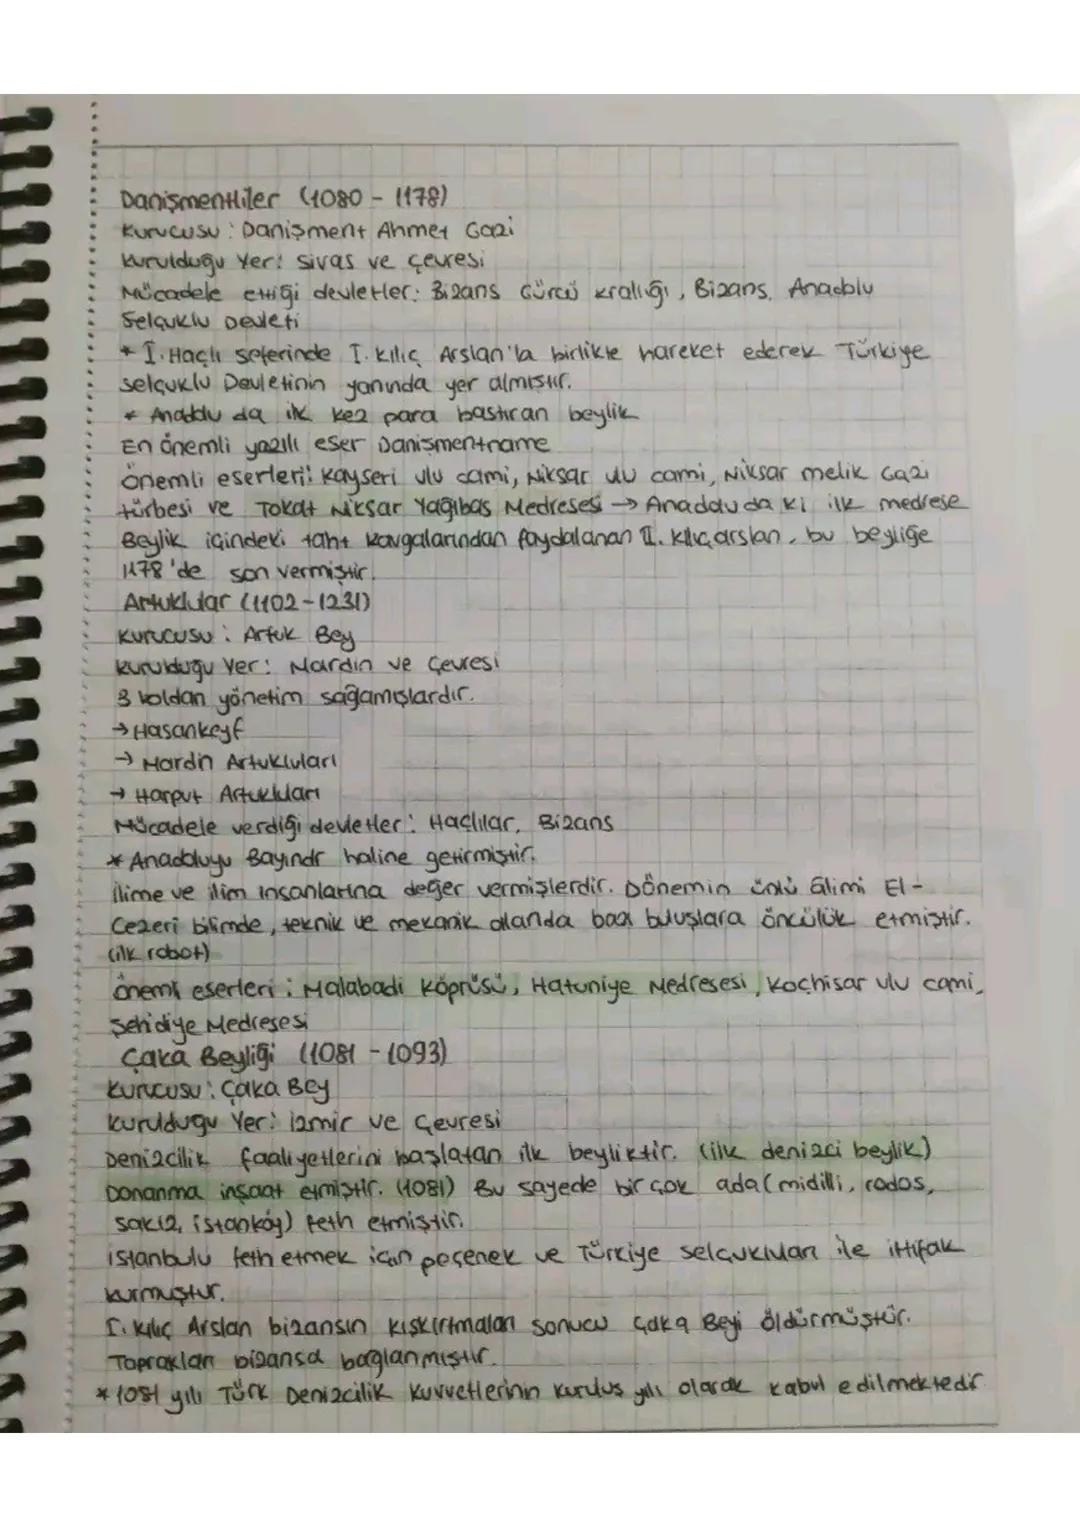 Danişmentliler (1080 - 1178)
Kurucusu : Danişment Ahmet Gazi
Kurulduğu Yer: Sivas ve çevresi
Mücadele ettiği devletler: Bizans Gürcü Krallığı, Bizans, Anadolu
Selçuklu Devleti
* I. Haçlı seferinde I. Kılıç Arslan'la birlikte hareket ederek Türkiye
Selçuklu Devletinin yanında yer almıştır.
* Anadolu da ilk kez para bastıran beylik
En önemli yazılı eser Danişmentname
Önemli eserleri: Kayseri ulu cami, Niksar ulu cami, Niksar melik Gazi
türbesi ve Tokat Niksar Yağıbas Medresesi → Anadolu da ki ilk medrese
Beylik içindeki taht kavgalarından faydalanan II. Kılıçarslan, bu beyliğe
1178'de son vermiştir.
Artuklular (1102-1231)
Kurucusu : Artuk Bey
Kurulduğu Yer: Mardin ve Çevresi
3 koldan yönetim sağamışlardır.
→ Hasankeyf
→ Mardin Artukluları
→ Harput Artukluları
Mücadele verdiği devletler: Haçlılar, Bizans
* Anadoluyu Bayındır haline getirmiştir.
İlime ve ilim insanlarına değer vermişlerdir. Dönemin ünlü âlimi El-
Cezeri bilimde, teknik ve mekanik alanda bazı buluşlara öncülük etmiştir.
(ilk robot)
Önemli eserleri : Malabadi Köprüsü, Hatuniye Medresesi, Koçhisar ulu cami,
Şehidiye Medresesi
Çaka Beyliği (1081 - 1093)
Kurucusu : Çaka Bey
Kurulduğu Yer: İzmir ve Çevresi
Denizcilik faaliyetlerini başlatan ilk beyliktir. (ilk denizci beylik)
Donanma inşaat etmiştir. (1081) Bu sayede bir çok ada (midilli, rodos,
sakız, istanköy) feth etmiştir.
İstanbulu feth etmek için peçenek ve Türkiye Selçukluları ile ittifak
kurmuştur.
I. Kılıç Arslan bizansın kışkırtmaları sonucu Çaka Beyi öldürmüştür.
Toprakları bizansa bağlanmıştır.
* 1081 yılı Türk Denizcilik Kuvvetlerinin kuruluş yılı olarak kabul edilmektedir